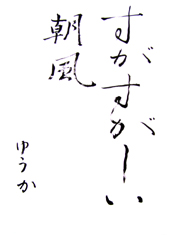 すがすがしい
朝風
ゆうか